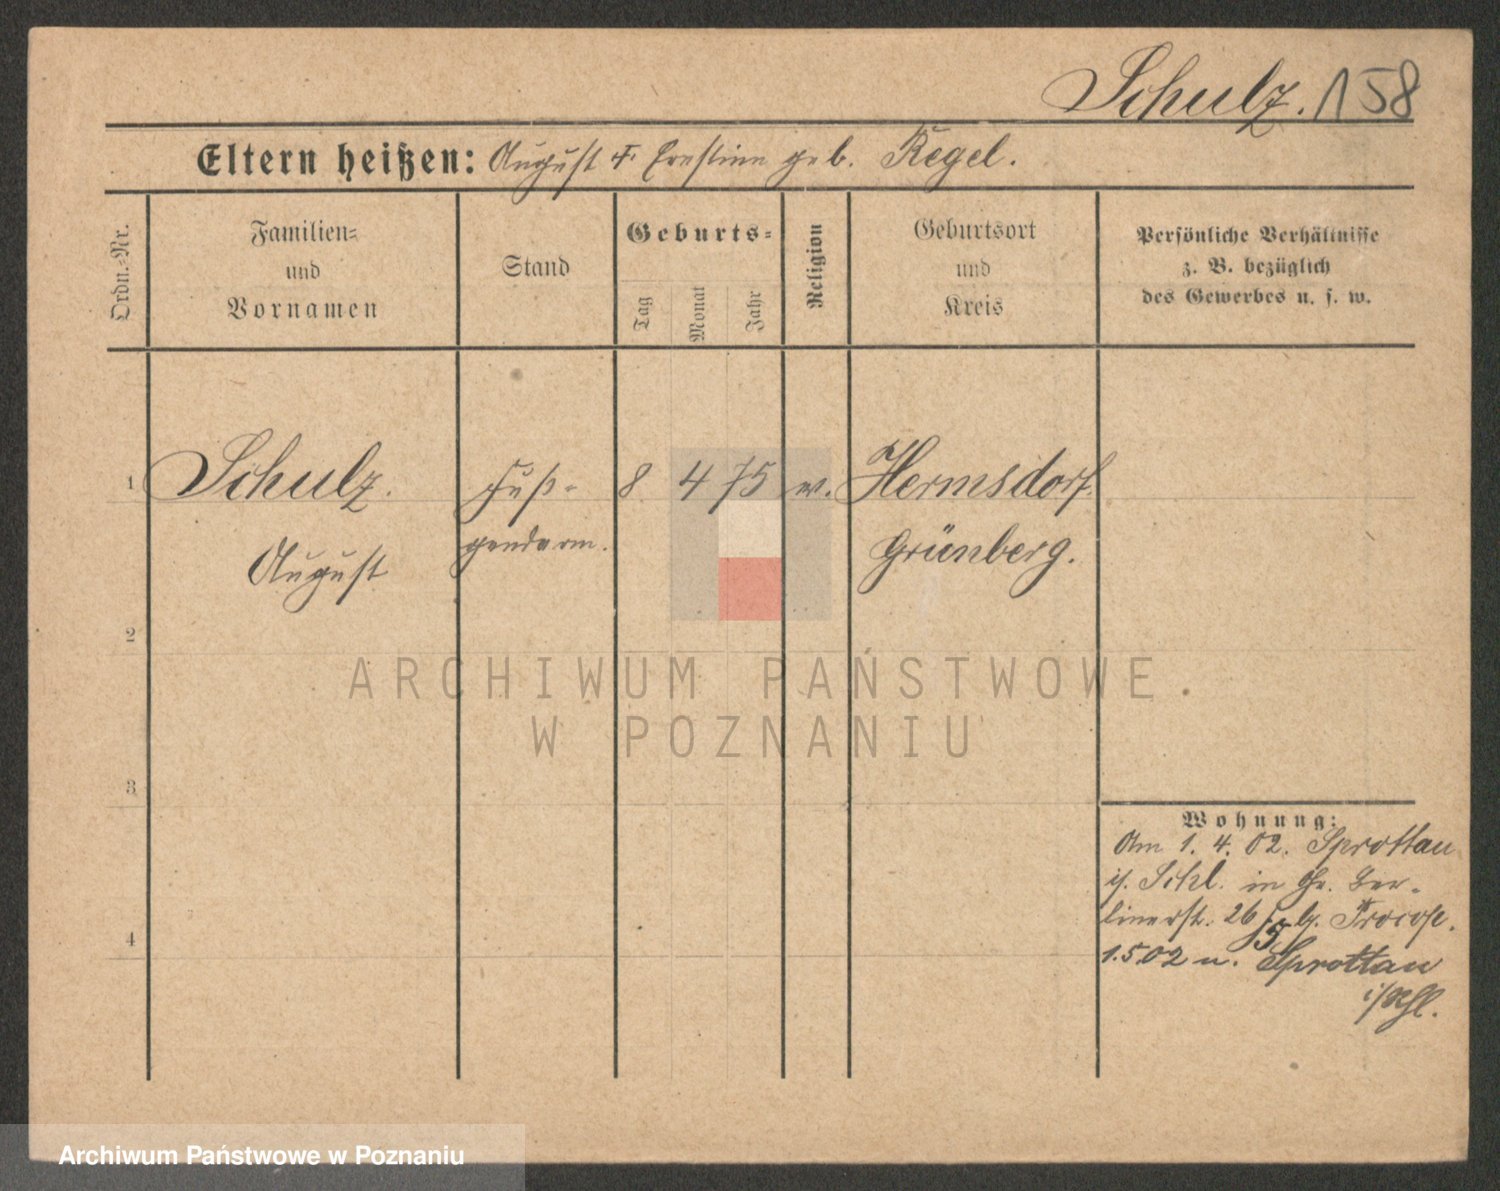 Schulz. 158
Eltern heißen: August u. Ernstine geb. Kegel.
Ordn.-Nr.
Familien-
und
Vornamen
Stand
Geburts-
Tag
Monat
Jahr
Religion
Geburtsort
und
Kreis
Persönliche Verhältnisse
z. B. bezüglich
des Gewerbes u. s. w.
1 Schulz. Fuß- 8 4 75 ev. Hermsdorf
August gendarm. Grünberg.
2
ARCHIWUM PAŃSTWOWE
W POZNANIU
3
4
Wohnung:
Am 1. 4. 02. Sprottau
i/. Schl. in Gr. Ber-
linerstr. 26 b.
1.5.02 n. Sprottau
i/Schl.
Archiwum Państwowe w Poznaniu